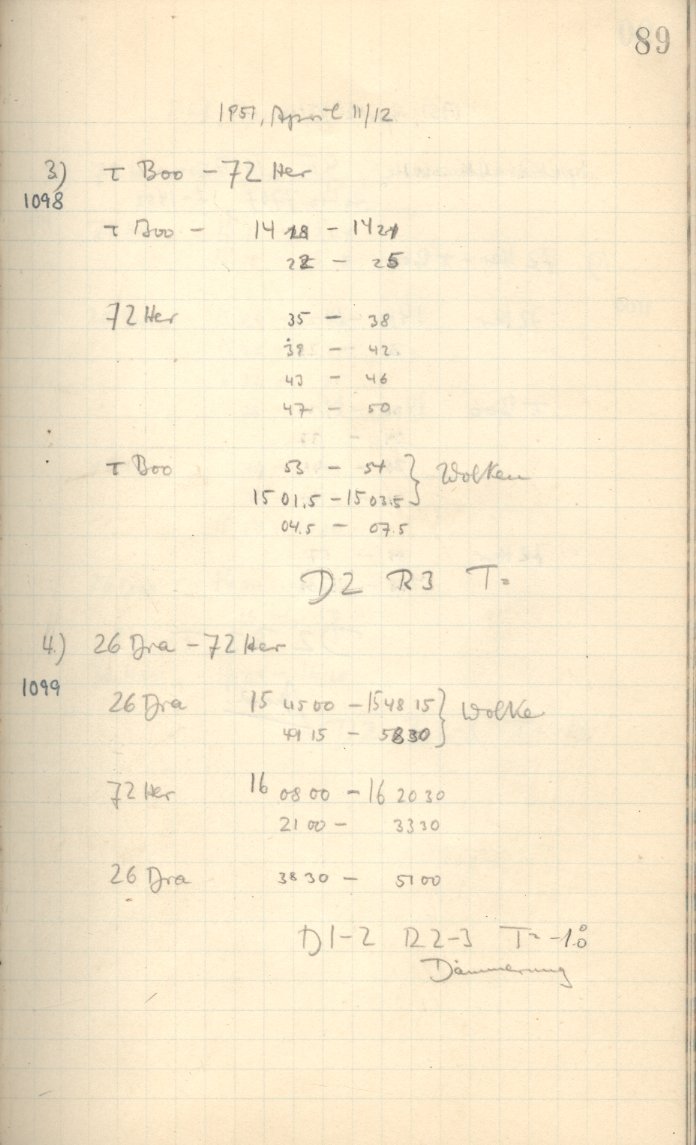 89
1957, April 11/12
3) τ Boo - 72 Her
1098
τ Boo - 14 18 - 14 21
22 - 25
72 Her 35 - 38
39 - 42
43 - 46
47 - 50
τ Boo 53 - 54 } Wolken
15 01.5 - 15 03.5
04.5 - 07.5
D2 R3 T=
4.) 26 Dra - 72 Her
1099
26 Dra 15 45 00 - 15 48 15 } Wolke
49 15 - 58 30
72 Her 16 08 00 - 16 20 30
21 00 - 33 30
26 Dra 38 30 - 51 00
D1-2 R2-3 T= -1.0°
Dämmerung